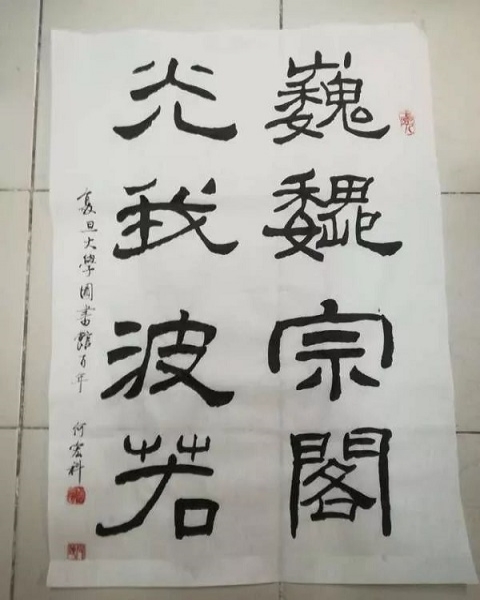 巍巍宗閣
光我波若
复旦大學图書館百年 何宏科